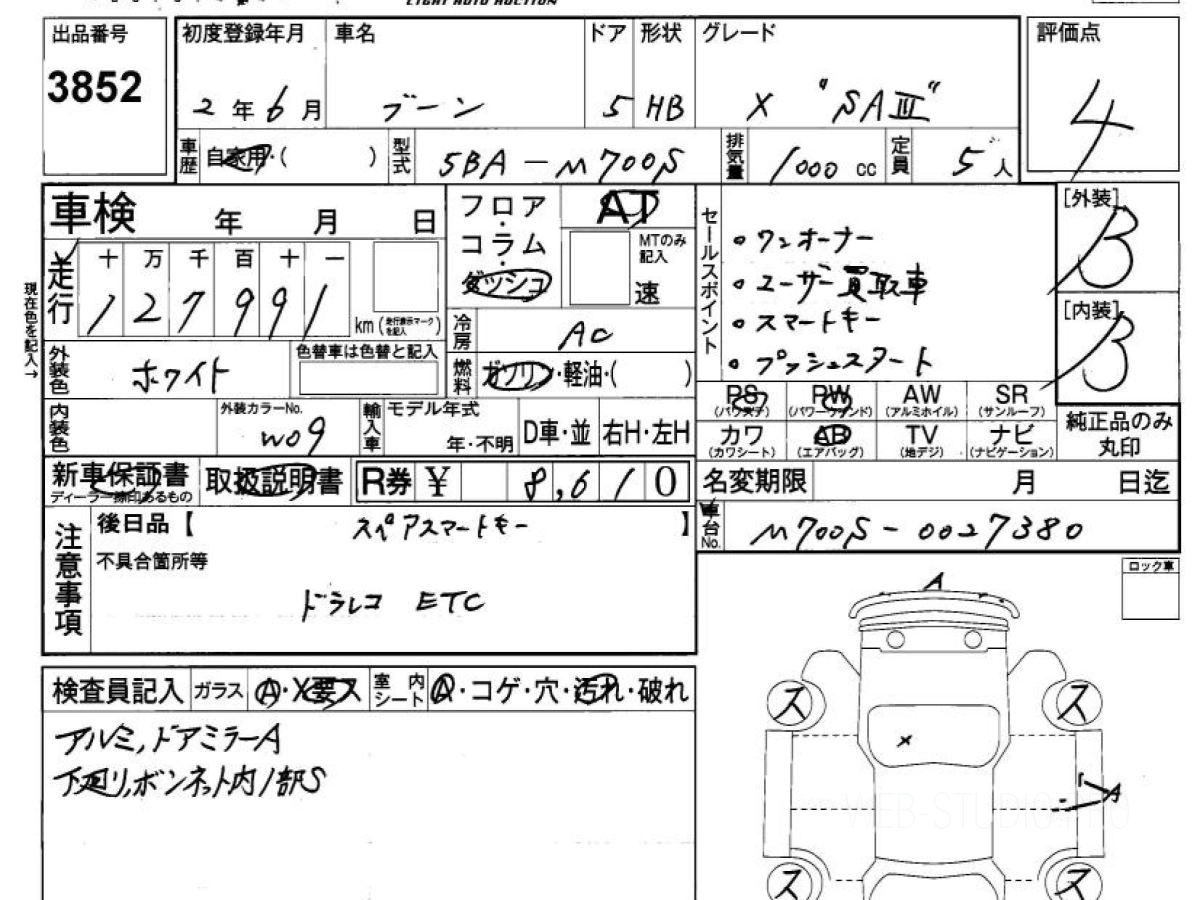 LIGHT AUTO AUCTION
出品番号 初度登録年月 車名 ドア 形状 グレード 評価点
3852 2年6月 ブーン 5 HB X "SAⅢ" 4
車歴 自家用・( ) 型式 5BA-M700S 排気量 1000 cc 定員 5人
車検 年 月 日 フロア・コラム・ダッシュ AT MTのみ記入 速
セールスポイント
・ワンオーナー
・ユーザー買取車
・スマートキー
・プッシュスタート
[外装] B
[内装] B
走行 十 万 千 百 十 一
127991 km (走行表示マークを記入)
現在色を記入→
冷房 AC
外装色 ホワイト 色替車は色替と記入 燃料 ガソリン・軽油・( )
PS (パワステ) PW (パワーウインド) AW (アルミホイル) SR (サンルーフ)
カワ (カワシート) AB (エアバッグ) TV (地デジ) ナビ (ナビゲーション) 純正品のみ丸印
内装色 外装カラーNo. W09 輸入車 モデル年式 年・不明 D車・並 右H・左H
新車保証書 ディーラー捺印あるもの 取扱説明書 R券 ¥ 8,610 名変期限 月 日迄
車台No. M700S-0027380
注意事項 後日品【 スペアスマートキー 】
不具合箇所等
ドラレコ ETC
ロック車
検査員記入 ガラス A・X要ス 室内シート A・コゲ・穴・汚れ・破れ
アルミ,ドアミラーA
下廻り,ボンネット内1部S
A
ス ス
X
A
WEB-STUDIO.PRO
ス ス